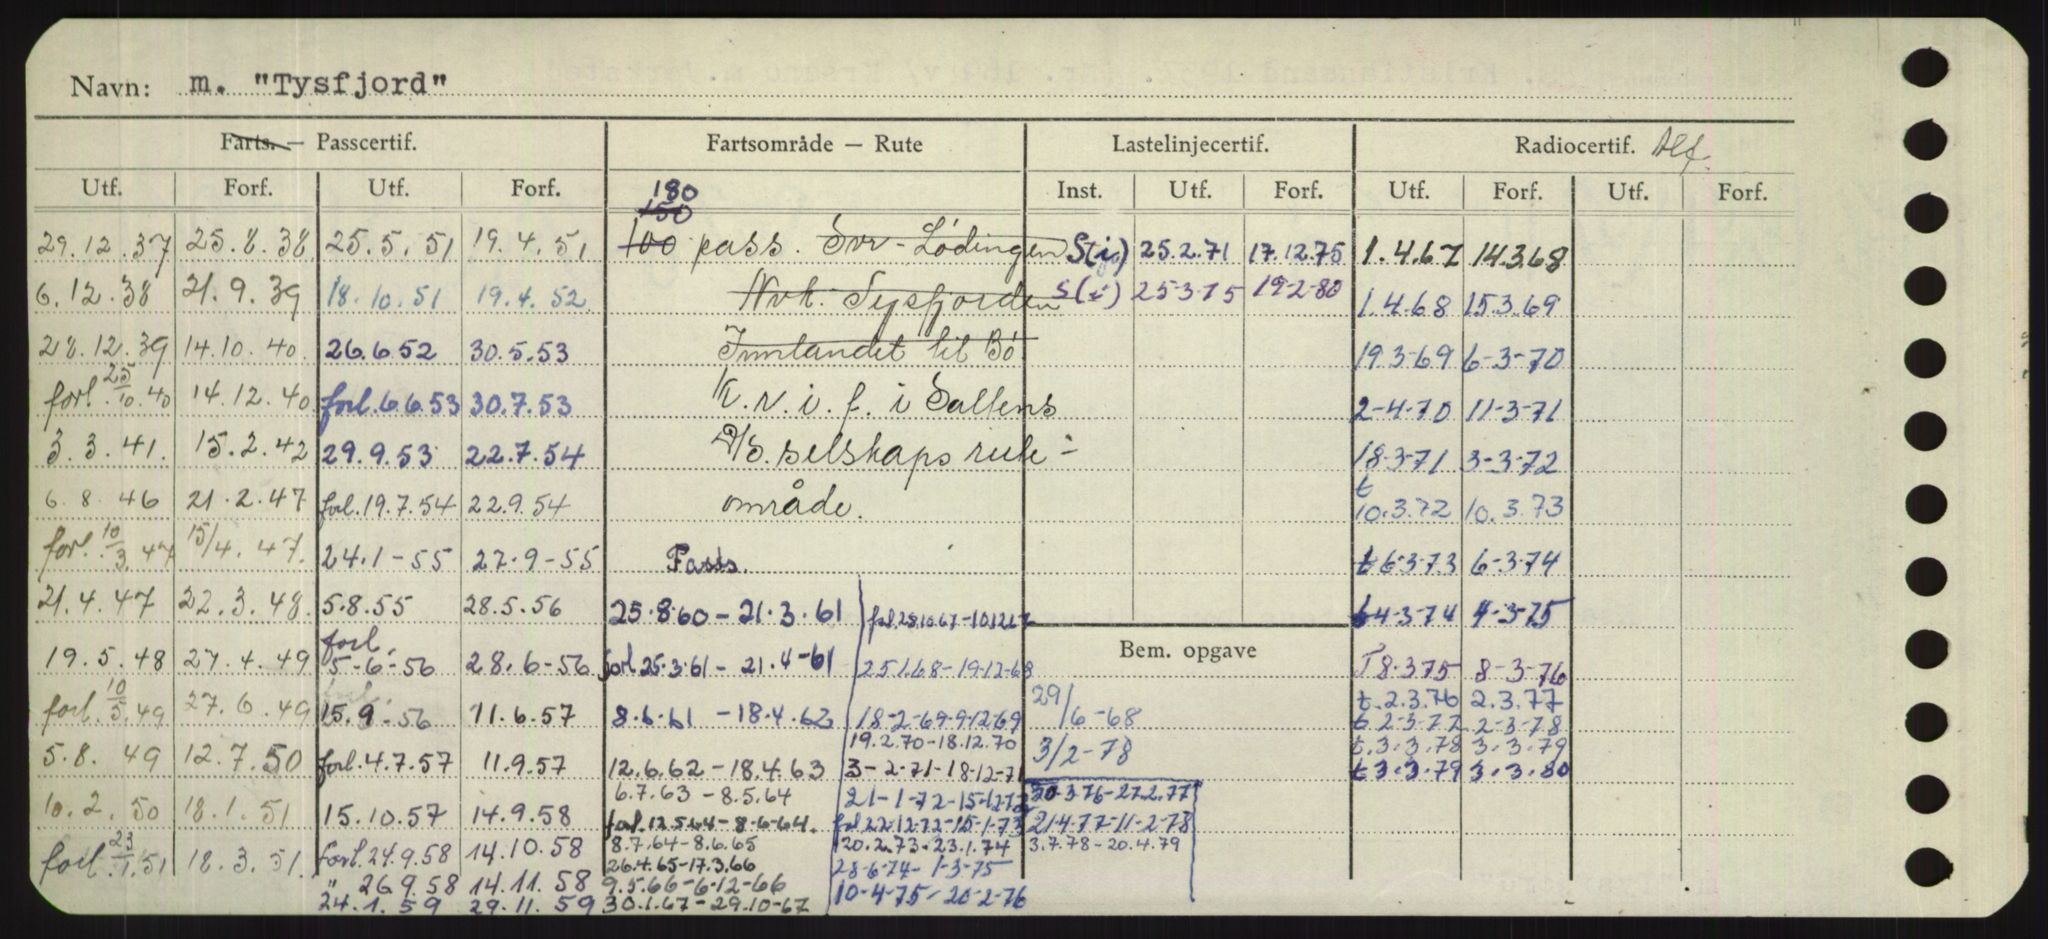 Navn: m. "Tysfjord"
Farts. — Passcertif. Fartsområde — Rute Lastelinjecertif. Radiocertif. Alf.
Utf. Forf. Utf. Forf. Inst. Utf. Forf. Utf. Forf. Utf. Forf.
180
150
29.12.37 25.8.38 25.5.51 19.4.51 100 pass. Svv-Lødingen S(is) 25.2.71 17.12.75 1.4.67 14.3.68
6.12.38 21.9.39 18.10.51 19.4.52 Nvk. Tysfjorden S(s) 25-3-75 19-2-80 1.4.68 15.3.69
28.12.39 14.10.40 26.6.52 30.5.53 Innlandet til Bø 19.3-69 6-3-70
forl. 25/10.40 14.12.40 forl.6.6.53 30.7.53 K.v.i.f. i Saltens 2-4-70 11-3-71
3.3.41. 15.2.42 29.9.53 22.7.54 D/S.selskaps rute- 18-3-71 3-3-72
6.8.46 21.2.47 forl.19.7.54 22.9.54 område. t 10.3.72 10.3.73
forl. 10/3.47 15/4.47. 24.1-55 27.9-55 Passs. t 6-3-73 6-3-74
21.4.47 22.3.48. 5.8.55 28.5.56 25.8.60 - 21.3.61 forl.28.10.67-10.12.67 t 4-3-74 4-3-75
19.5.48 27.4.49 forl. 5-6-56 28.6-56 forl.25.3.61 - 21.4-61 25.1.68-19-12-68 Bem. opgave T 8-3-75 8-3-76
forl. 10/5.49 27.6.49 15.9.56 11.6.57 8.6.61 - 18.4.62 18-2-69-9-12-69 29/6-68 t.2.3.76 2.3.77
t 2-3-77 2-3-78
5.8.49 12.7.50 forl.4.7.57 11.9.57 12.6.62 - 18.4.63 19.2.70-18.12.70 3/2-78 t.3.3.78 3.3.79
3-2-71-18-12-71 t 3.3.79 3.3.80
10.2.50 18.1.51 15.10.57 14.9.58 6.7.63 - 8.5.64 21-1-72-15-12-72 30-3-76-27.2.77
forl.12.5.64-8-6-64. forl 22.12-72-15-1-73 21.4.77-11-2-78
forl. 23/1.51 18.3.51. forl.24.9.58 14.10.58 8.7.64-8.6.65 20.2.73-23.1.74 3.7.78-20.4.79
26.4.65-17.3.66 28-6-74- 1-3-75
" 26.9.58 14.11.58 9.5.66-6-12-66 10-4-75-20-2-76
24.1.59 29.11.59 30.1.67-29.10-67